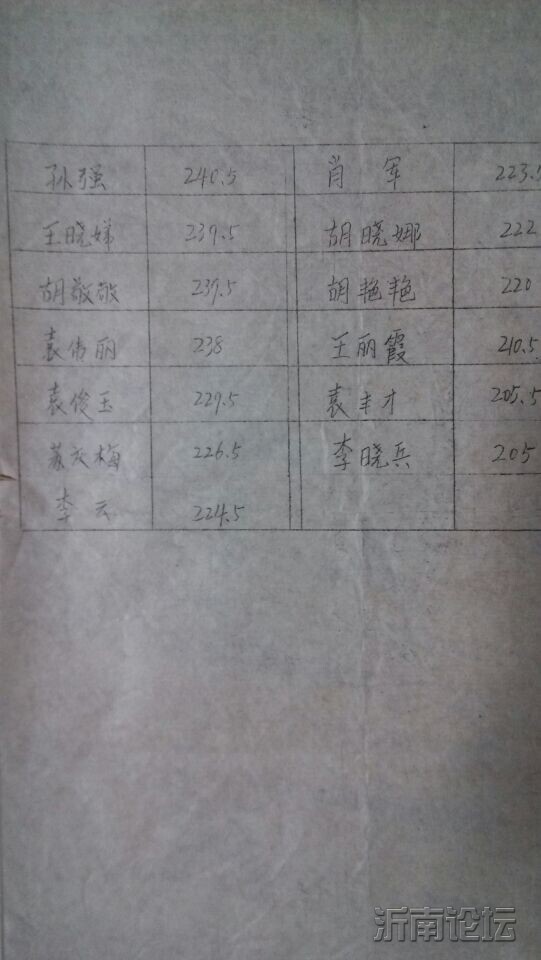 孙强 240.5 肖军 223.5
王晓娣 239.5 胡晓娜 222
胡敬敏 239.5 胡艳艳 220
袁伟丽 238 王丽霞 210.5
袁俊玉 229.5 袁丰才 205.5
苏庆梅 226.5 李晓兵 205
李云 224.5
沂南论坛